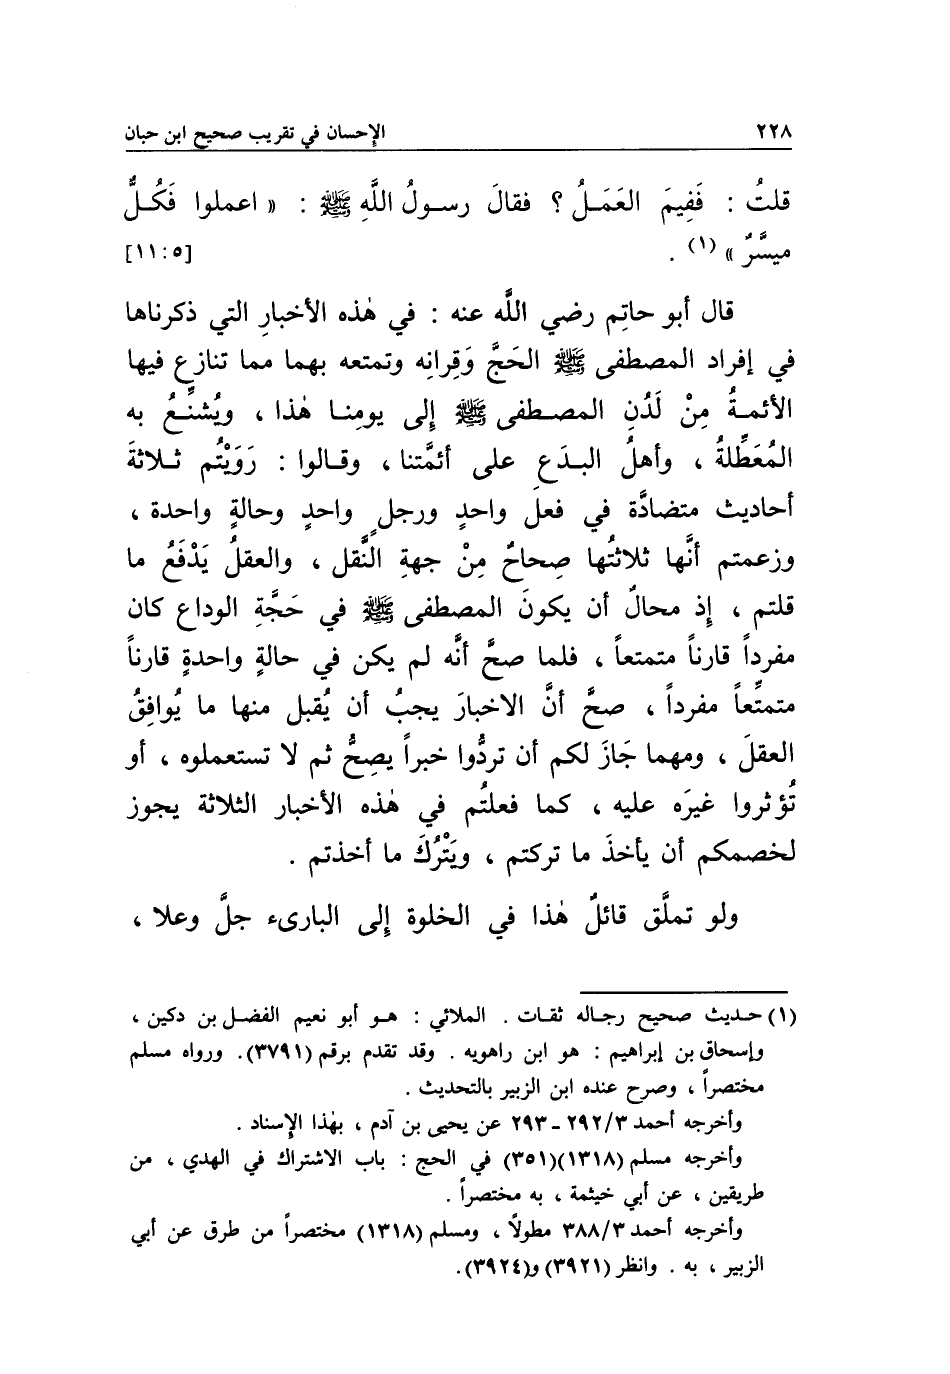 ٢٢٨ الإحسان في تقريب صحيح ابن حبان
قلتُ : فَفِيمَ العَمَـلُ ؟ فقالَ رسـولُ اللَّهِ ﷺ : « اعملوا فَكُـلٌّ
ميسَّرٌ » (١) . [٥:١١]
قال أبو حاتِم رضي اللَّه عنه : في هٰذه الأخبارِ التي ذكرناها
في إفراد المصطفى ﷺ الحَجَّ وَقِرانِه وتمتعه بهما مما تنازع فيها
الأئمـةُ مِنْ لَدُنِ المصـطفى ﷺ إلى يومِنـا هٰذا ، ويُشنِّـعُ به
المُعَطِّلةُ ، وأهلُ البـدَعِ على أئمَّتنا ، وقـالوا : رَوَيْتُم ثـلاثةَ
أحاديث متضادَّة في فعلٍ واحدٍ ورجلٍ واحدٍ وحالةٍ واحدة ،
وزعمتم أنَّها ثلاثتُها صِحاحٌ مِنْ جهةِ النَّقل ، والعقلُ يَدْفَعُ ما
قلتم ، إذ محالٌ أن يكونَ المصطفى ﷺ في حَجَّةِ الوداع كان
مفرداً قارناً متمتعاً ، فلما صحَّ أنَّه لم يكن في حالةٍ واحدةٍ قارناً
متمتِّعاً مفرداً ، صحَّ أنَّ الاخبارَ يجبُ أن يُقبل منها ما يُوافِقُ
العقلَ ، ومهما جَازَ لكم أن تردُّوا خبراً يصِحُّ ثم لا تستعملوه ، أو
تُؤثروا غيرَه عليه ، كما فعلتُم في هٰذه الأخبار الثلاثة يجوز
لخصمكم أن يأخذَ ما تركتم ، ويَتْرُكَ ما أخذتم .
ولو تملَّق قائلُ هٰذا في الخلوة إلى البارىء جلَّ وعلا ،
(١) حـديث صحيح رجـاله ثقـات . الملائي : هـو أبو نعيم الفضـل بن دكين ،
وإسحاق بن إبراهيم : هو ابن راهويه . وقد تقدم برقم (٣٧٩١). ورواه مسلم
مختصراً ، وصرح عنده ابن الزبير بالتحديث .
وأخرجه أحمد ٣/ ٢٩٢ ـ ٢٩٣ عن يحيى بن آدم ، بهٰذا الإسناد .
وأخرجه مسلم (١٣١٨)(٣٥١) في الحج : باب الاشتراك في الهدي ، من
طريقين ، عن أبي خيثمة ، به مختصراً .
وأخرجه أحمد ٣/ ٣٨٨ مطولًا ، ومسلم (١٣١٨) مختصراً من طرق عن أبي
الزبير ، به . وانظر (٣٩٢١) و(٣٩٢٤).